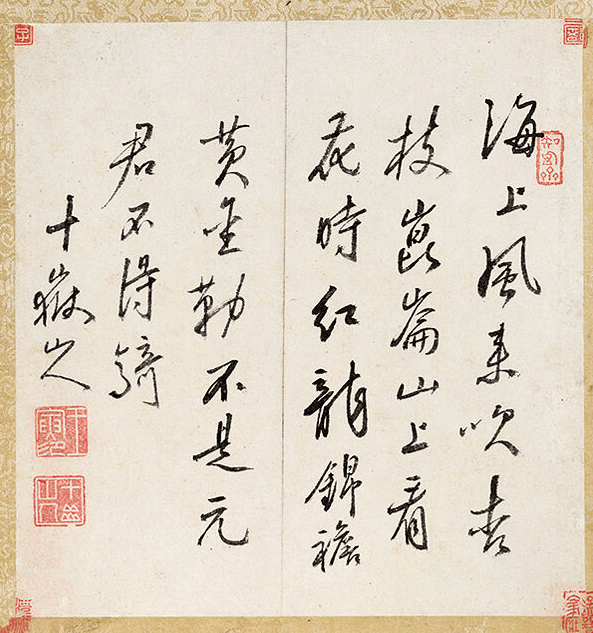 海上風來吹杏
枝崑崙山上看
花時紅龍錦襜
黃金勒不是元
君不得騎
十嶽山人